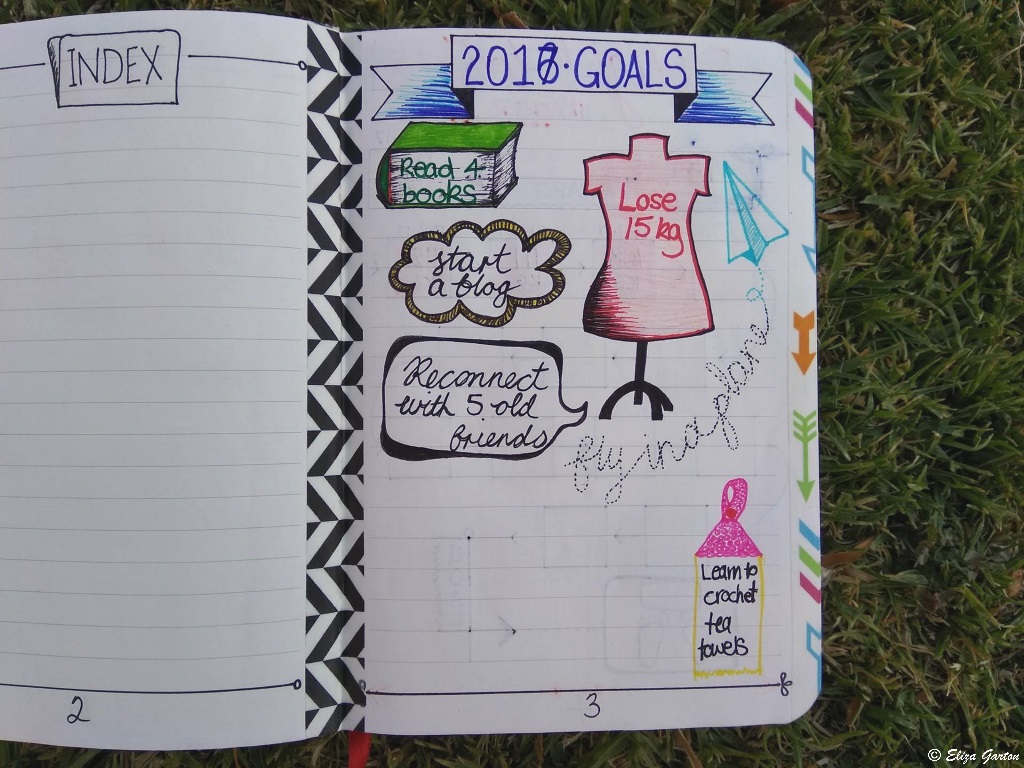 INDEX
GOALS
Read 4
books
Lose
15kg
start
a blog
Reconnect
with 5 old
friends
fly in a plane
Learn to
crochet
tea
towels
2
3
© Eliza Garton